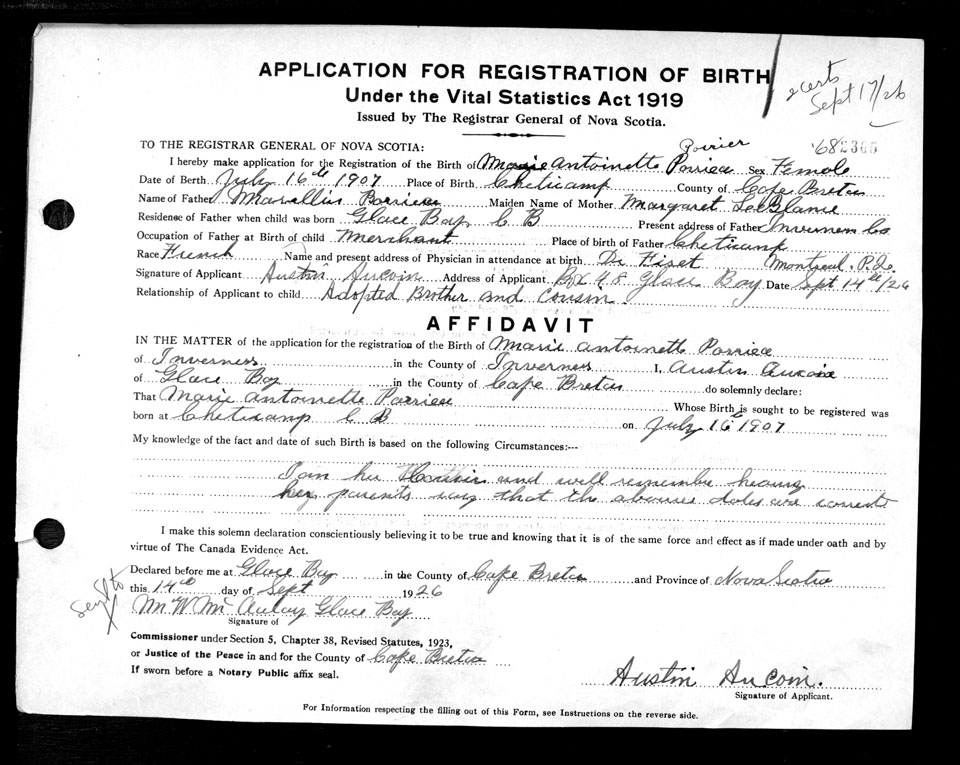 APPLICATION FOR REGISTRATION OF BIRTH
2 certs
Sept 17/26
Under the Vital Statistics Act 1919
Issued by The Registrar General of Nova Scotia.
Poirier
TO THE REGISTRAR GENERAL OF NOVA SCOTIA:
I hereby make application for the Registration of the Birth of Marie Antoinette Sex Female
Date of Birth July 16th 1907 Place of Birth Cheticamp County of Cape Breton
Name of Father Maiden Name of Mother Margaret LeBlanc
Residence of Father when child was born Glace Bay C B Present address of Father Inverness Co
Occupation of Father at Birth of child Merchant Place of birth of Father Cheticamp
Race French Name and present address of Physician in attendance at birth. Dr Fiset Montreal. P.Q.
Signature of Applicant Austin Aucoin Address of Applicant Bx 48 Glace Bay Date Sept 14th/26
Relationship of Applicant to child Adopted Brother and Cousin
AFFIDAVIT
IN THE MATTER of the application for the registration of the Birth of Marie Antoinette
of Inverness in the County of Inverness I, Austin Aucoin
of Glace Bay in the County of Cape Breton do solemnly declare:
That Marie Antoinette Whose Birth is sought to be registered was
born at Cheticamp C B on July 16th 1907
My knowledge of the fact and date of such Birth is based on the following Circumstances:--
I am her and well remember hearing
her parents say that the dates are correct
I make this solemn declaration conscientiously believing it to be true and knowing that it is of the same force and effect as if made under oath and by
virtue of The Canada Evidence Act.
Declared before me at Glace Bay in the County of Cape Breton and Province of Nova Scotia
this 14th day of Sept 1926
M W McAulay Glace Bay
Signature of
Commissioner under Section 5, Chapter 38, Revised Statutes, 1923,
or Justice of the Peace in and for the County of Cape Breton
If sworn before a Notary Public affix seal.
Austin Aucoin.
Signature of Applicant.
For Information respecting the filling out of this Form, see Instructions on the reverse side.